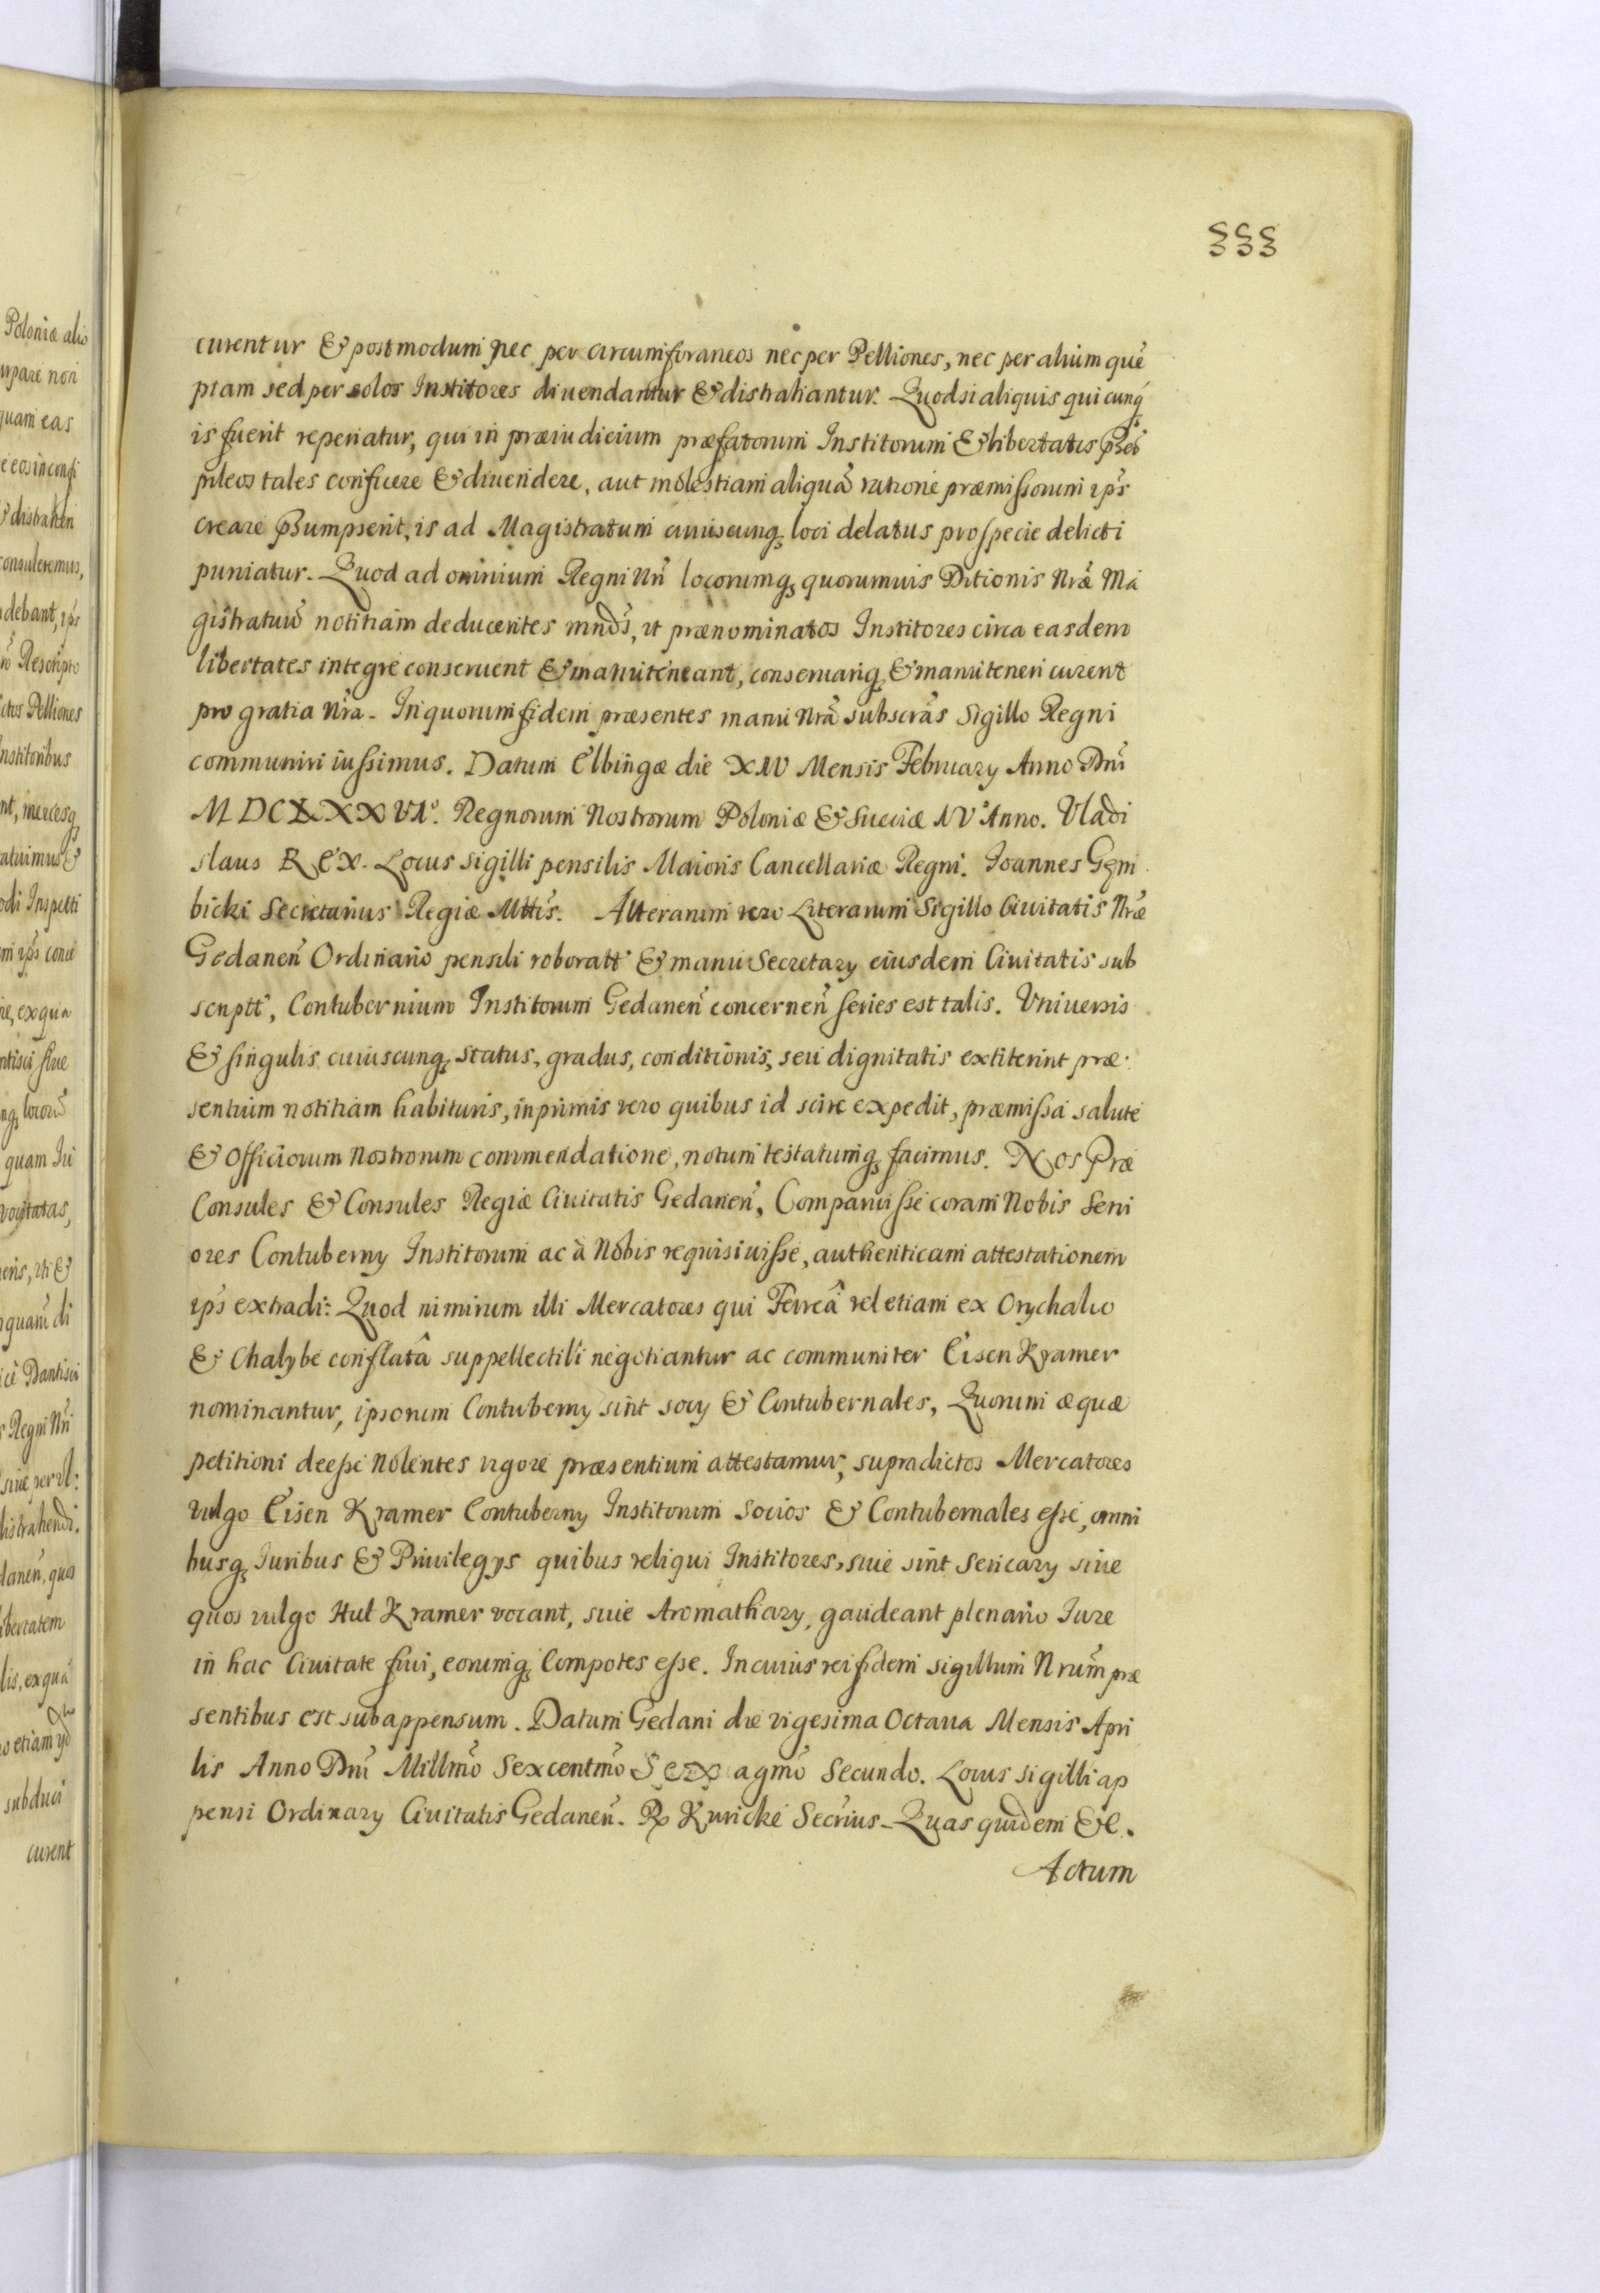 333
curentur & postmodum nec per circumforaneos nec per Pelliones, nec per alium que
piam sed per solos Institores diuendantur & distrahantur. Quodsi aliquis quicunq
is fuerit reperiatur, qui in præiudicium præfatorum Institorum & libertatis
pileos tales conficere & diuendere, aut molestiam aliquã ratione præmissorum ip̃s
creare p̃sumpserit, is ad Magistratum cuiuscunq loci delatus pro specie delicti
puniatur. Quod ad omnium Regni Nri locorumq quorumuis Ditionis Nræ Ma
gistratuũ notitiam deducentes mndũs, ut prænominatos Institores circa easdem
libertates integre conseruent & manuteneant, conseruariq & manuteneri curent
pro gratia Nra. In quorum fidem præsentes manu Nrã subscrãs Sigillo Regni
communiri iussimus. Datum Elbingæ die XIV Mensis February Anno Dni
MDCXXXVI°. Regnorum Nostrorum Poloniæ & Sueciæ IV° Anno. Vladi
slaus REX. Locus sigilli pensilis Maioris Cancellariæ Regni. Joannes Gem
bicki Secretarius Regiæ Mttis. Alterarum vero Literarum Sigillo Ciuitatis Nræ
Gedaneñ Ordinario pensili roboratt & manu Secretary eiusdem Ciuitatis sub
scriptt, Contubernium Institorum Gedaneñ concerneñ series est talis. Vniuersis
& singulis cuiuscunq status, gradus, conditionis, seu dignitatis extiterint præ
sentium notitiam habituris, inprimis vero quibus id scire expedit, præmissa salute
& Officiorum Nostrorum commendatione, notum testatumq facimus. Nos Præ
Consules & Consules Regiæ Ciuitatis Gedaneñ, Comparuisse coram Nobis Seni
ores Contuberny Institorum ac à Nobis requisiuisse, authenticam attestationem
ip̃s extradi: Quod nimirum illi Mercatores qui Ferreâ vel etiam ex Orychalco
& Chalybe conflatâ suppellectili negotiantur ac communiter Eisen Kramer
nominantur, ipsorum Contuberny sint socy & Contubernales, Quorum æquæ
petitioni deesse Nolentes vigore præsentium attestamur, supradictos Mercatores
vulgo Eisen Kramer Contuberny Institorum Socios & Contubernales esse, omni
busq Iuribus & Priuilegys quibus reliqui Institores, siue sint Sericary siue
quos vulgo Hut Kramer vocant, siue Aromathary, gaudeant plenario Iure
in hac Ciuitate frui, eorumq Compotes esse. In cuius rei fidem sigillum Nrum præ
sentibus est subappensum. Datum Gedani die vigesima Octaua Mensis Apri
lis Anno Dni Millmo Sexcentmo Sexagmo Secundo. Locus sigilli ap
pensi Ordinary Ciuitatis Gedaneñ. R Kuricke Secrius. Quas quidem &c.
Actum